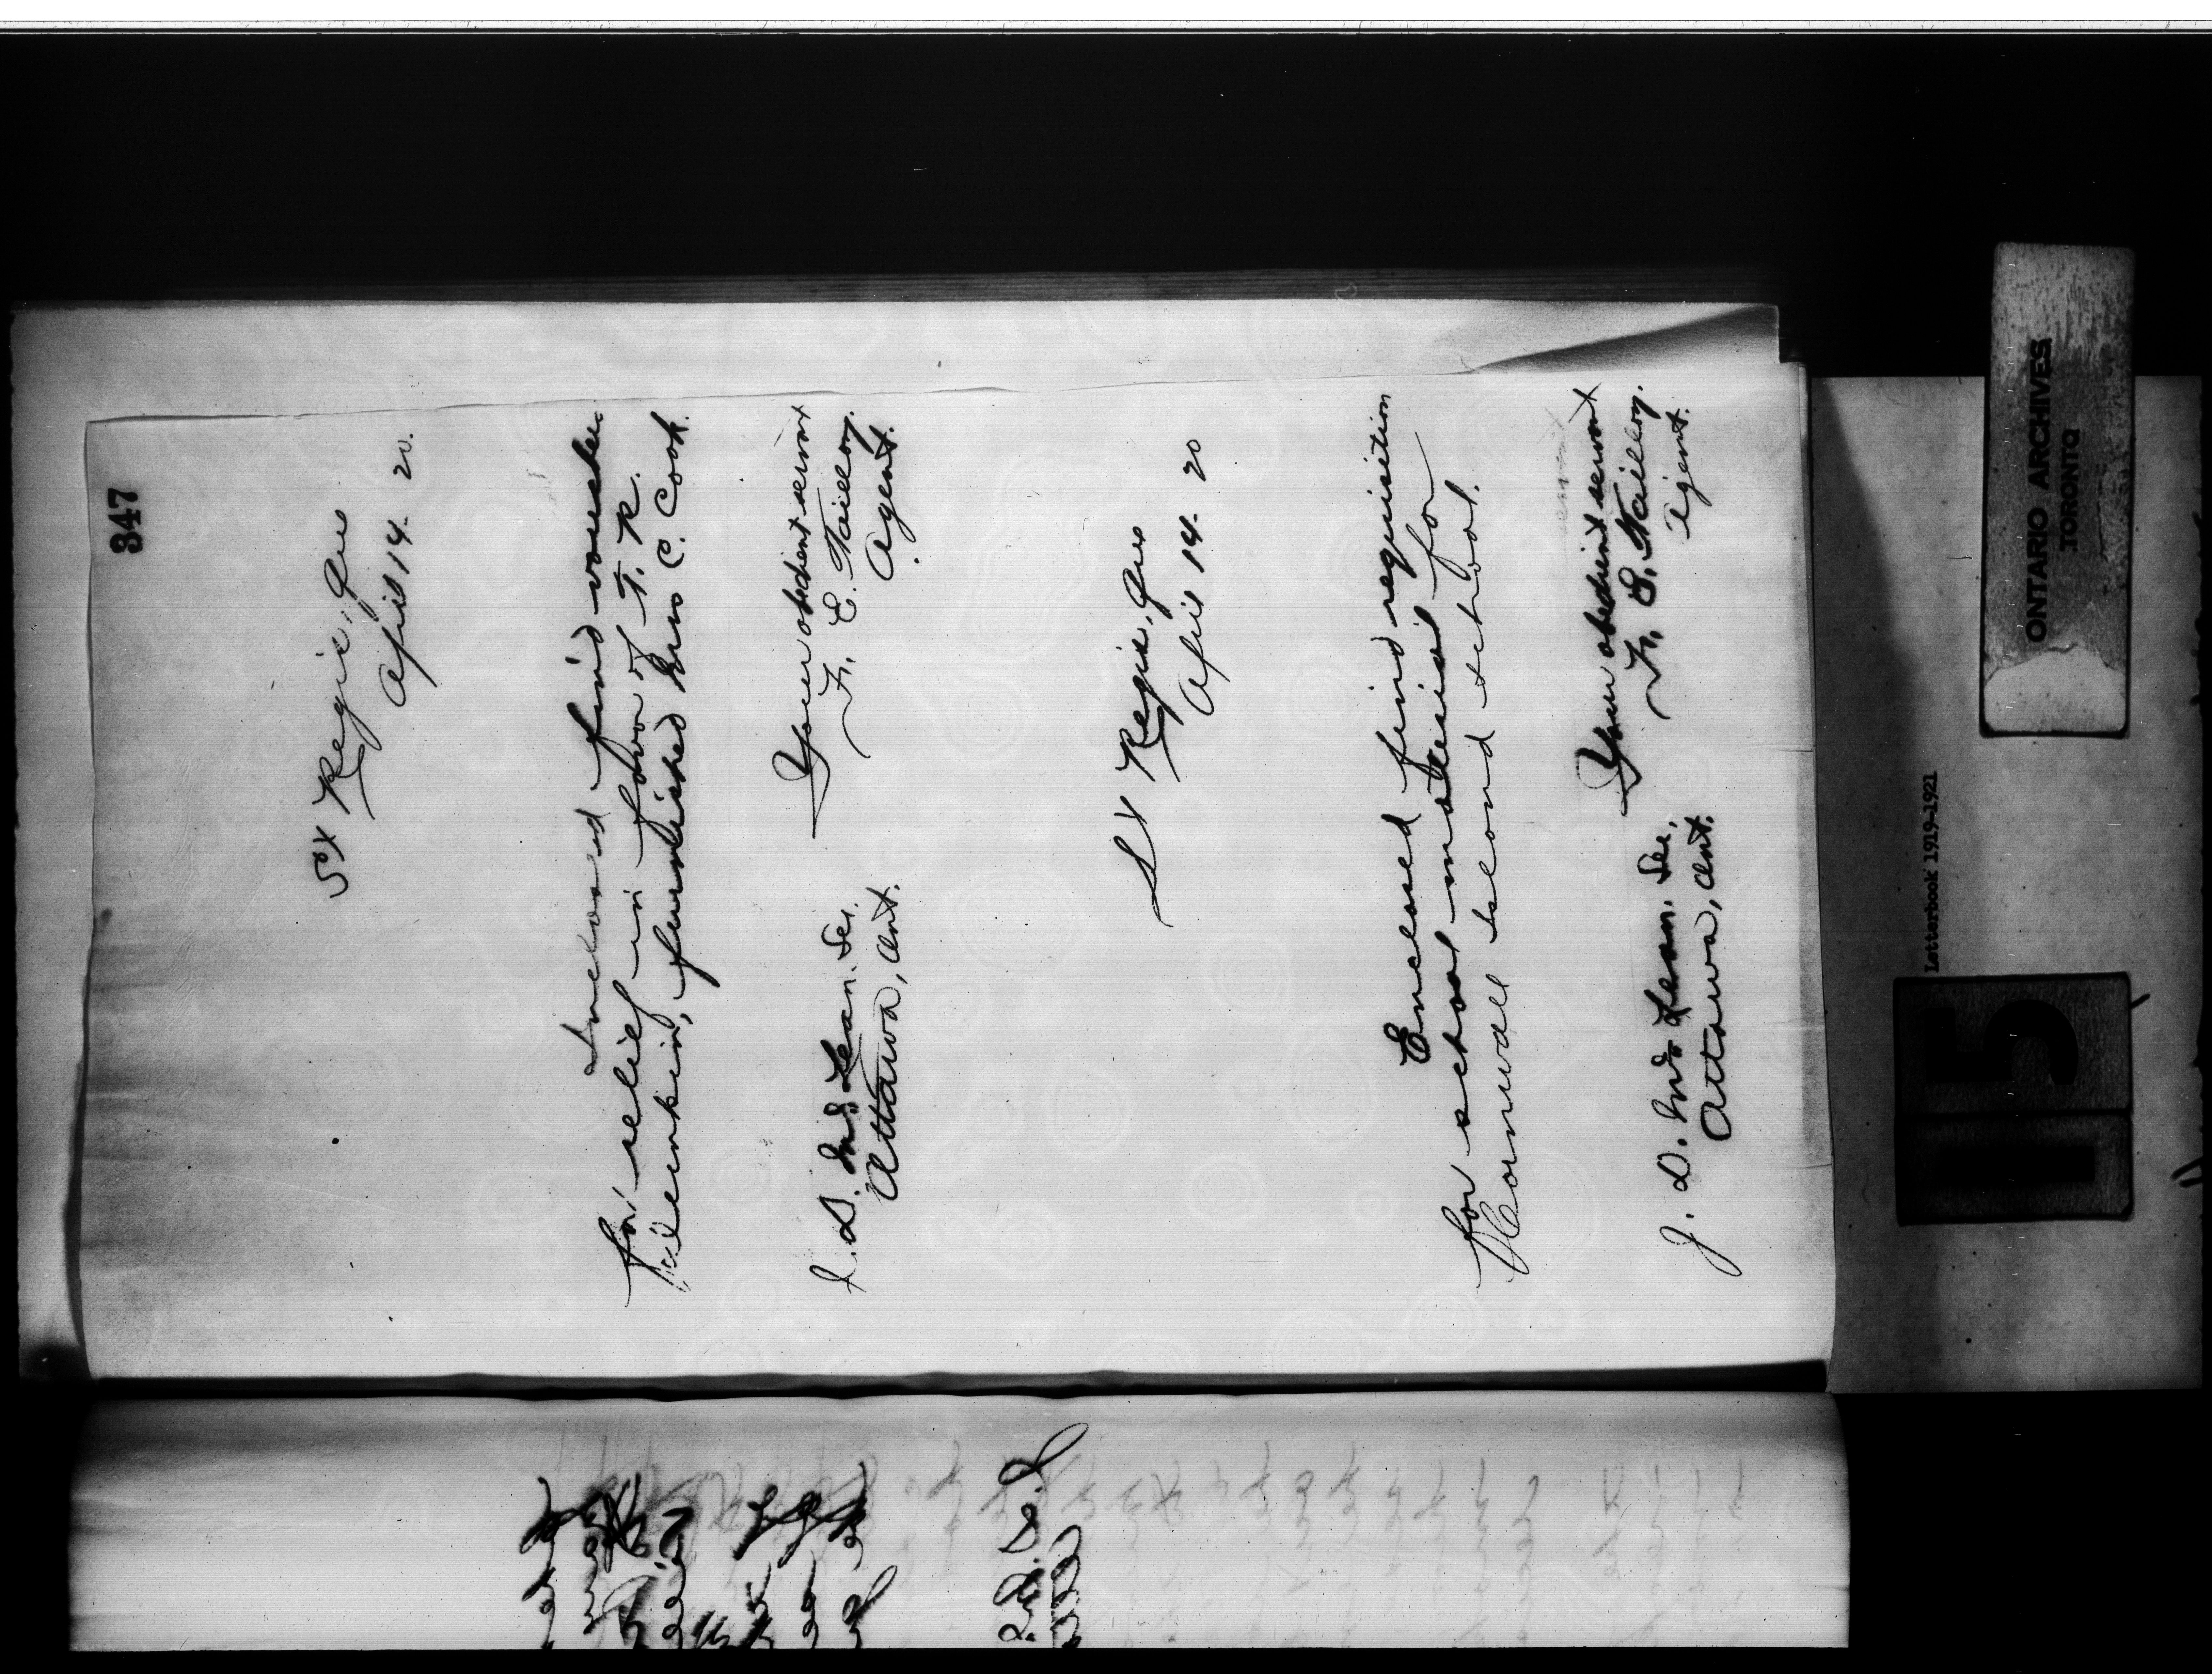 347
St Regis, Que
April 14. 20.
Inclosed find voucher
for relief in favor of T. R.
furnished Mrs C. Cook.
Your obedient servant
F. E. Taillon.
Agent.
J. D. McLean. Sec.
Ottawa, Ont.
St Regis, Que
April 14. 20
Enclosed find requisition
for school material for
Cornwall Island school.
Your obedient servant
F. E. Taillon.
Agent.
J. D. Mc Lean. Sec.
Ottawa, Ont.
ONTARIO ARCHIVES
TORONTO
Letterbook 1919-1921
15